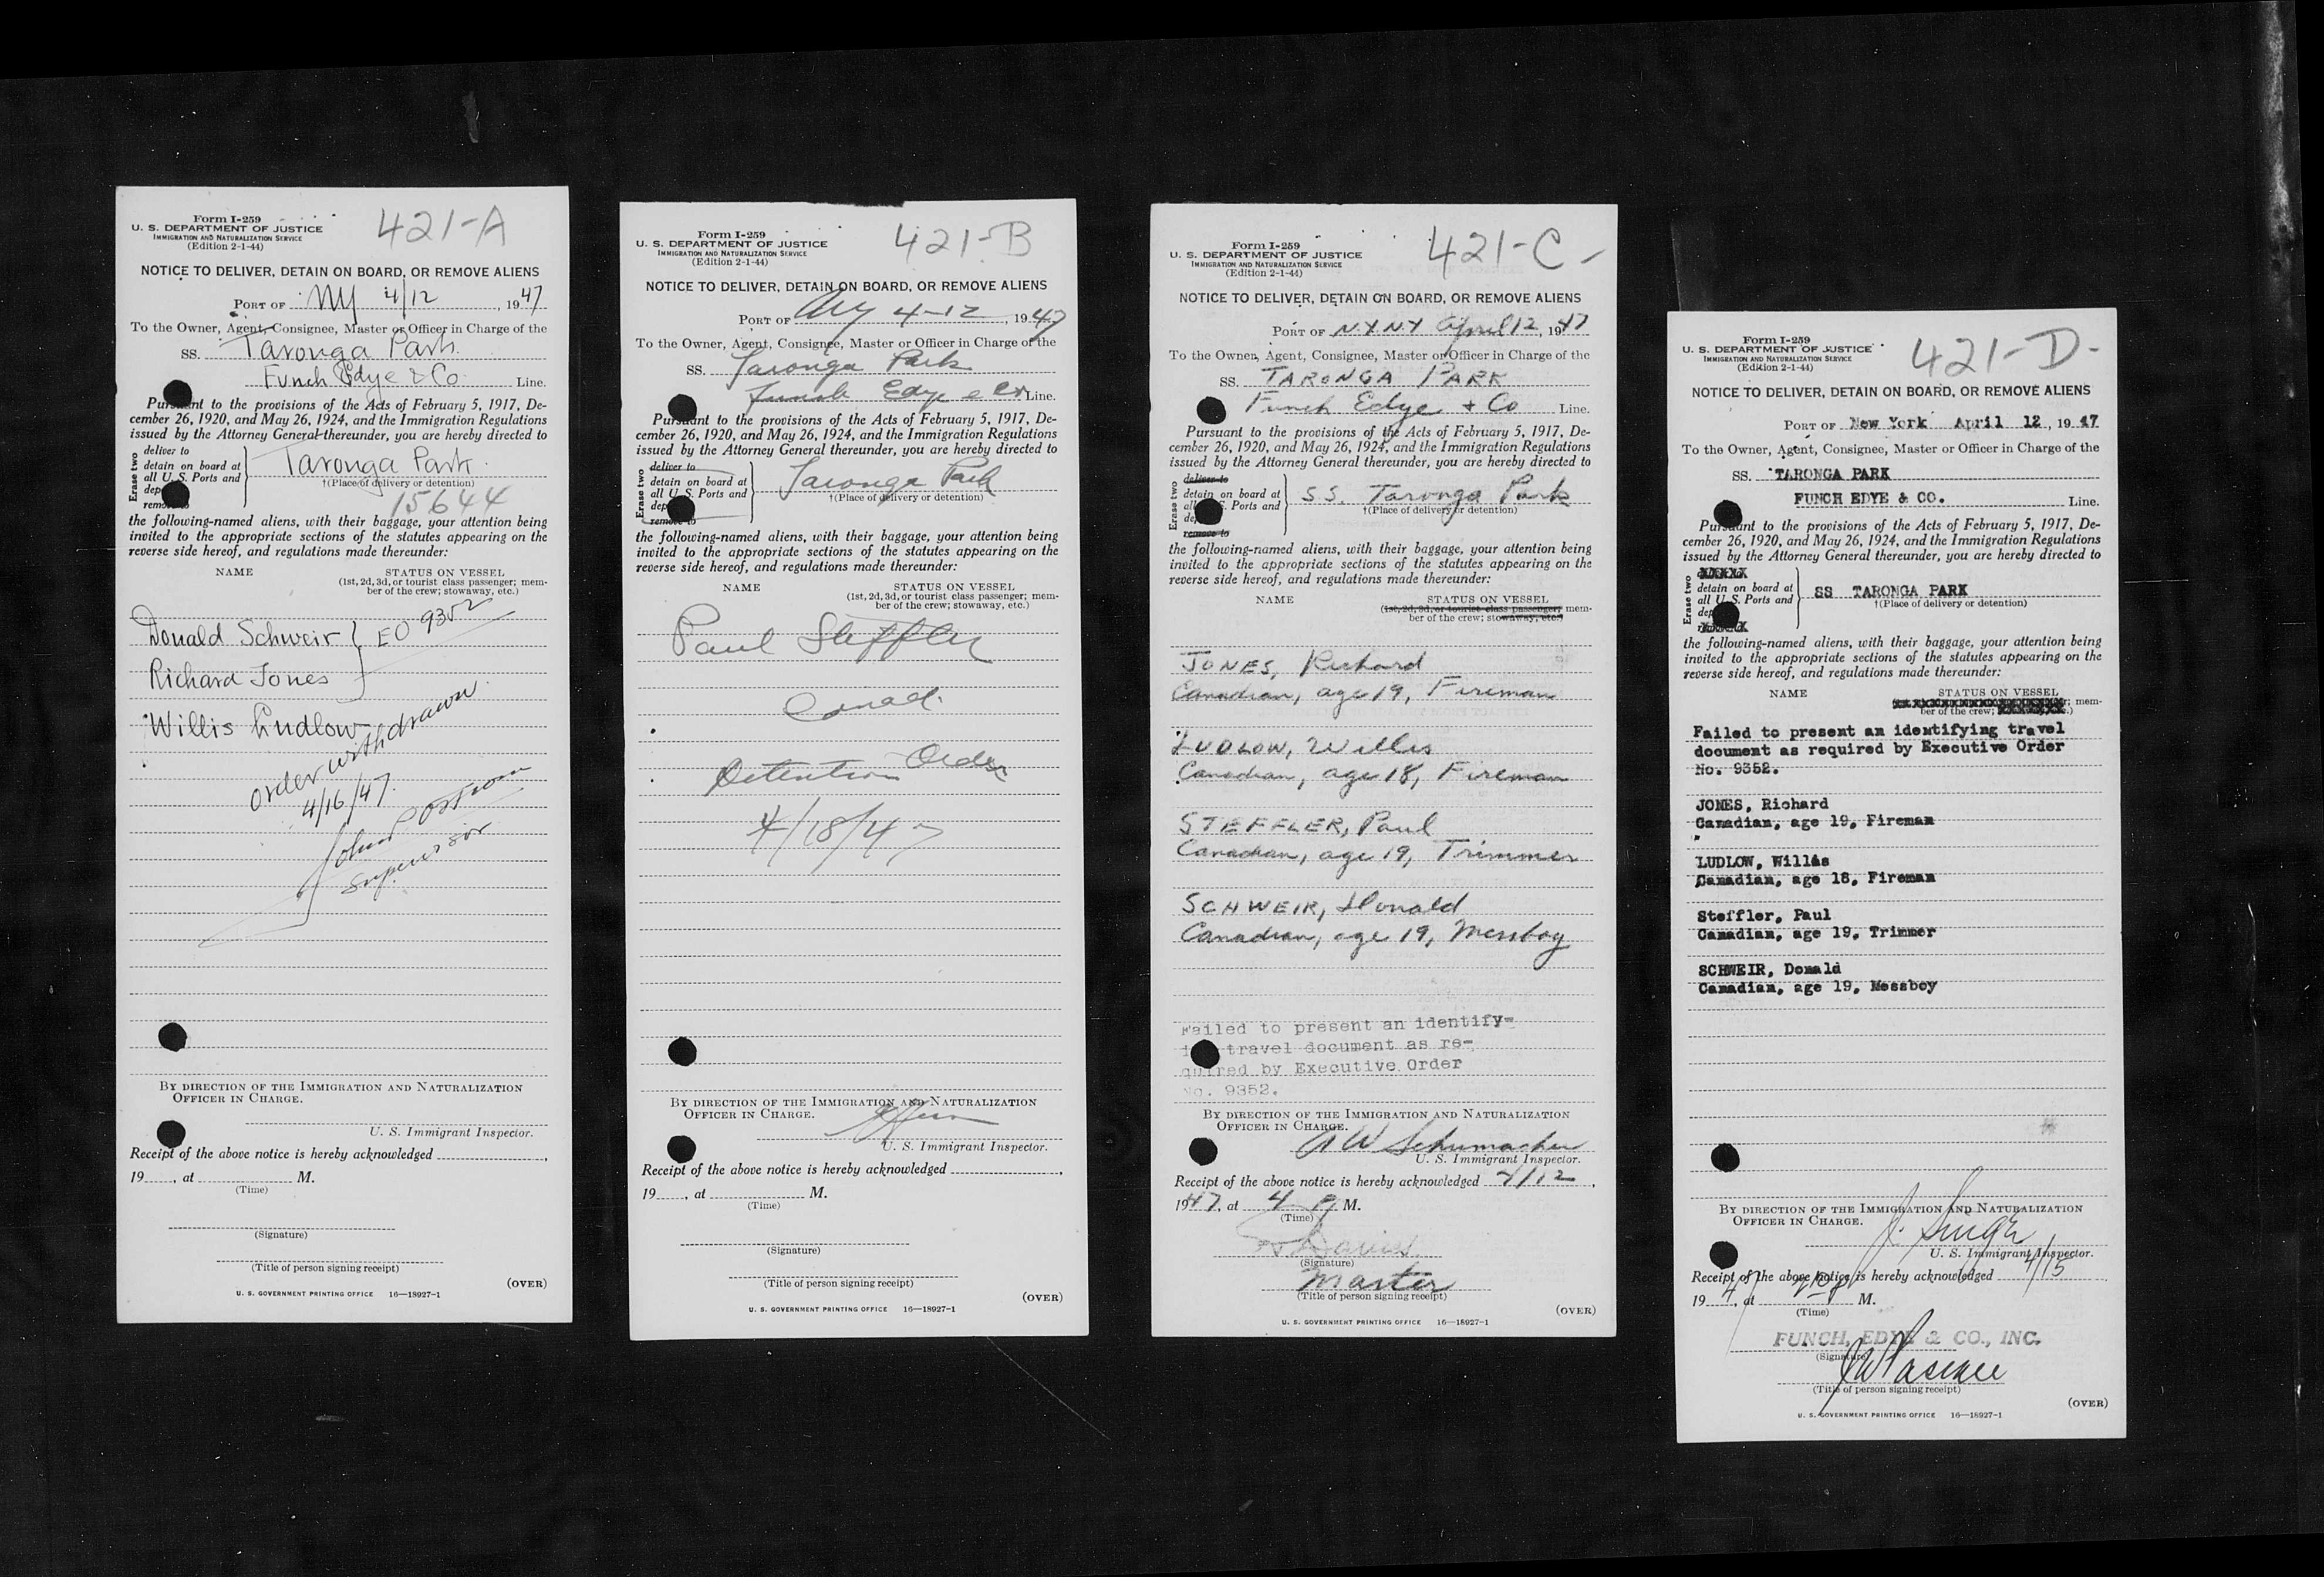 421-A
Form I-259
U. S. DEPARTMENT OF JUSTICE
IMMIGRATION AND NATURALIZATION SERVICE
(Edition 2-1-44)
NOTICE TO DELIVER, DETAIN ON BOARD, OR REMOVE ALIENS
PORT OF NY 4/12, 1947
To the Owner, Agent, Consignee, Master or Officer in Charge of the
SS. Taronga Park
Funch Edye & Co. Line.
Pursuant to the provisions of the Acts of February 5, 1917, De-
cember 26, 1920, and May 26, 1924, and the Immigration Regulations
issued by the Attorney General thereunder, you are hereby directed to
Erase two
deliver to
detain on board at
all U. S. Ports and
dep
remove to
Taronga Park.
†(Place of delivery or detention)
15644
the following-named aliens, with their baggage, your attention being
invited to the appropriate sections of the statutes appearing on the
reverse side hereof, and regulations made thereunder:
NAME STATUS ON VESSEL
(1st, 2d, 3d, or tourist class passenger; mem-
ber of the crew; stowaway, etc.)
Donald Schweir } EO 9352
Richard Jones
Willis Ludlow
order withdrawn
4/16/47.
John
supervisor
BY DIRECTION OF THE IMMIGRATION AND NATURALIZATION
OFFICER IN CHARGE.
U. S. Immigrant Inspector.
Receipt of the above notice is hereby acknowledged ,
19 , at M.
(Time)
(Signature)
(Title of person signing receipt)
(OVER)
U. S. GOVERNMENT PRINTING OFFICE 16—18927-1
421-B
Form I-259
U. S. DEPARTMENT OF JUSTICE
IMMIGRATION AND NATURALIZATION SERVICE
(Edition 2-1-44)
NOTICE TO DELIVER, DETAIN ON BOARD, OR REMOVE ALIENS
PORT OF NY 4-12, 1947
To the Owner, Agent, Consignee, Master or Officer in Charge of the
SS. Taronga Park
Funch Edye & Co Line.
Pursuant to the provisions of the Acts of February 5, 1917, De-
cember 26, 1920, and May 26, 1924, and the Immigration Regulations
issued by the Attorney General thereunder, you are hereby directed to
Erase two
deliver to
detain on board at
all U. S. Ports and
dep
remove to
Taronga Park
†(Place of delivery or detention)
the following-named aliens, with their baggage, your attention being
invited to the appropriate sections of the statutes appearing on the
reverse side hereof, and regulations made thereunder:
NAME STATUS ON VESSEL
(1st, 2d, 3d, or tourist class passenger; mem-
ber of the crew; stowaway, etc.)
Paul Steffler
Detention Order
4/18/47
BY DIRECTION OF THE IMMIGRATION AND NATURALIZATION
OFFICER IN CHARGE.
U. S. Immigrant Inspector.
Receipt of the above notice is hereby acknowledged ,
19 , at M.
(Time)
(Signature)
(Title of person signing receipt)
(OVER)
U. S. GOVERNMENT PRINTING OFFICE 16—18927-1
421-C-
Form I-259
U. S. DEPARTMENT OF JUSTICE
IMMIGRATION AND NATURALIZATION SERVICE
(Edition 2-1-44)
NOTICE TO DELIVER, DETAIN ON BOARD, OR REMOVE ALIENS
PORT OF N.Y N.Y April 12, 1947
To the Owner, Agent, Consignee, Master or Officer in Charge of the
SS. TARONGA PARK
Funch Edye + Co Line.
Pursuant to the provisions of the Acts of February 5, 1917, De-
cember 26, 1920, and May 26, 1924, and the Immigration Regulations
issued by the Attorney General thereunder, you are hereby directed to
Erase two
deliver to
detain on board at
all U. S. Ports and
de
remove to
S.S. Taronga Park
†(Place of delivery or detention)
the following-named aliens, with their baggage, your attention being
invited to the appropriate sections of the statutes appearing on the
reverse side hereof, and regulations made thereunder:
NAME STATUS ON VESSEL
(1st, 2d, 3d, or tourist class passenger; mem-
ber of the crew; stowaway, etc.)
JONES, Richard
Canadian, age 19, Fireman
LUDLOW, Willis
Canadian, age 18, Fireman
STEFFLER, Paul
Canadian, age 19, Trimmer
SCHWEIR, Donald
Canadian, age 19, Messboy
Failed to present an identify-
ing travel document as re-
quired by Executive Order
No. 9352.
BY DIRECTION OF THE IMMIGRATION AND NATURALIZATION
OFFICER IN CHARGE.
A W Schumacher
U. S. Immigrant Inspector.
Receipt of the above notice is hereby acknowledged 4/12,
1947, at 4 P M.
(Time)
Davies
(Signature)
Master
(Title of person signing receipt)
(OVER)
U. S. GOVERNMENT PRINTING OFFICE 16—18927-1
421-D-
Form I-259
U. S. DEPARTMENT OF JUSTICE
IMMIGRATION AND NATURALIZATION SERVICE
(Edition 2-1-44)
NOTICE TO DELIVER, DETAIN ON BOARD, OR REMOVE ALIENS
PORT OF New York April 12, 1947
To the Owner, Agent, Consignee, Master or Officer in Charge of the
SS. TARONGA PARK
FUNCH EDYE & CO. Line.
Pursuant to the provisions of the Acts of February 5, 1917, De-
cember 26, 1920, and May 26, 1924, and the Immigration Regulations
issued by the Attorney General thereunder, you are hereby directed to
Erase two
XXXXX
detain on board at
all U. S. Ports and
dep
XXXXX
SS TARONGA PARK
†(Place of delivery or detention)
the following-named aliens, with their baggage, your attention being
invited to the appropriate sections of the statutes appearing on the
reverse side hereof, and regulations made thereunder:
NAME STATUS ON VESSEL
mem-
ber of the crew;
Failed to present an identifying travel
document as required by Executive Order
No. 9352.
JONES, Richard
Canadian, age 19, Fireman
LUDLOW, Willis
Canadian, age 18, Fireman
Steffler, Paul
Canadian, age 19, Trimmer
SCHWEIR, Donald
Canadian, age 19, Messboy
BY DIRECTION OF THE IMMIGRATION AND NATURALIZATION
OFFICER IN CHARGE.
U. S. Immigrant Inspector.
Receipt of the above notice is hereby acknowledged 4/15
1947, at M.
(Time)
FUNCH, EDYE & CO., INC.
(Signature)
(Title of person signing receipt)
(OVER)
U. S. GOVERNMENT PRINTING OFFICE 16—18927-1